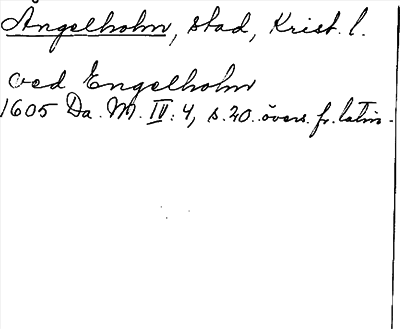 Ängelholm, stad, Krist. l.
ved Engelholm
1605 Da. M. IV: 4, s. 20. övers. fr. latin.